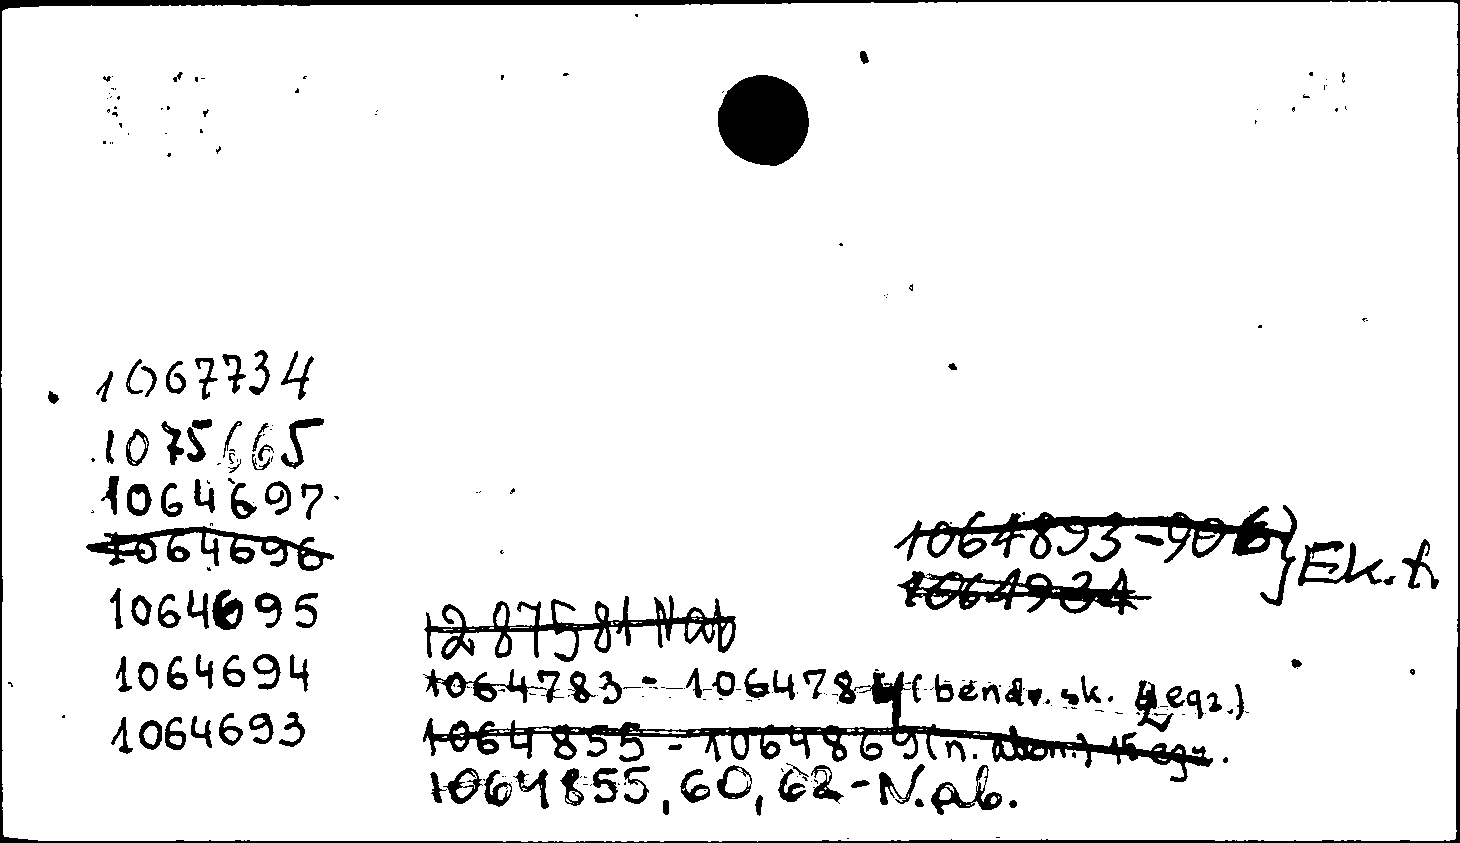 1067734
1075665
1064697
1064696
1064695
1064694
1064693
1064893-906 } Ek. t.
1064934
1287581 N ab
1064783 - 1064784 (bendr. sk. 2 egz.)
1064855 - 1064869 (n. abon.) 15 egz.
1064855, 60, 62 - N. ab.